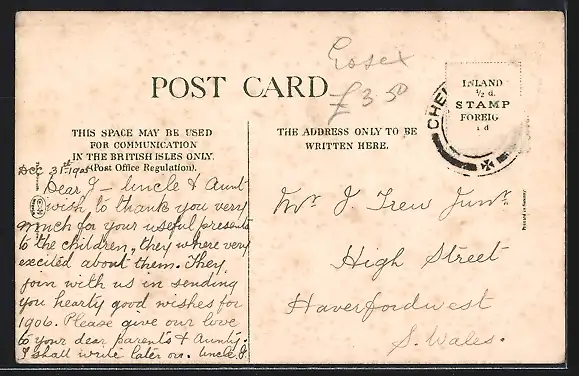 Essex
£3.50
POST CARD
INLAND
½ d.
STAMP
FOREIG
1 d
CHE
THIS SPACE MAY BE USED
FOR COMMUNICATION
IN THE BRITISH ISLES ONLY.
(Post Office Regulation).
THE ADDRESS ONLY TO BE
WRITTEN HERE.
Dec 31st 1905
Dear J - Uncle & Aunt
wish to thank you very
much for your useful presents
to the children, they where very
excited about them. They
join with us in sending
you hearty good wishes for
1906. Please give our love
to your dear parents & Aunty.
I shall write later on. Uncle J.
Mr J. Trew Junr
High Street
Haverfordwest
S. Wales.
Printed in Germany